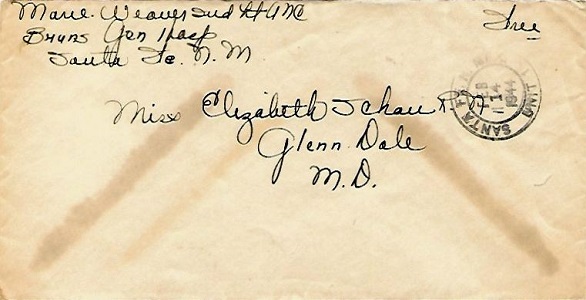 Marie Weaver 2nd Lt ANC
Bruns Gen Hosp
Santa Fe. N. M.
Free
Miss Elizabeth Schau R.N.
Glenn Dale
M.D.
SANTA FE
FEB
14
1944